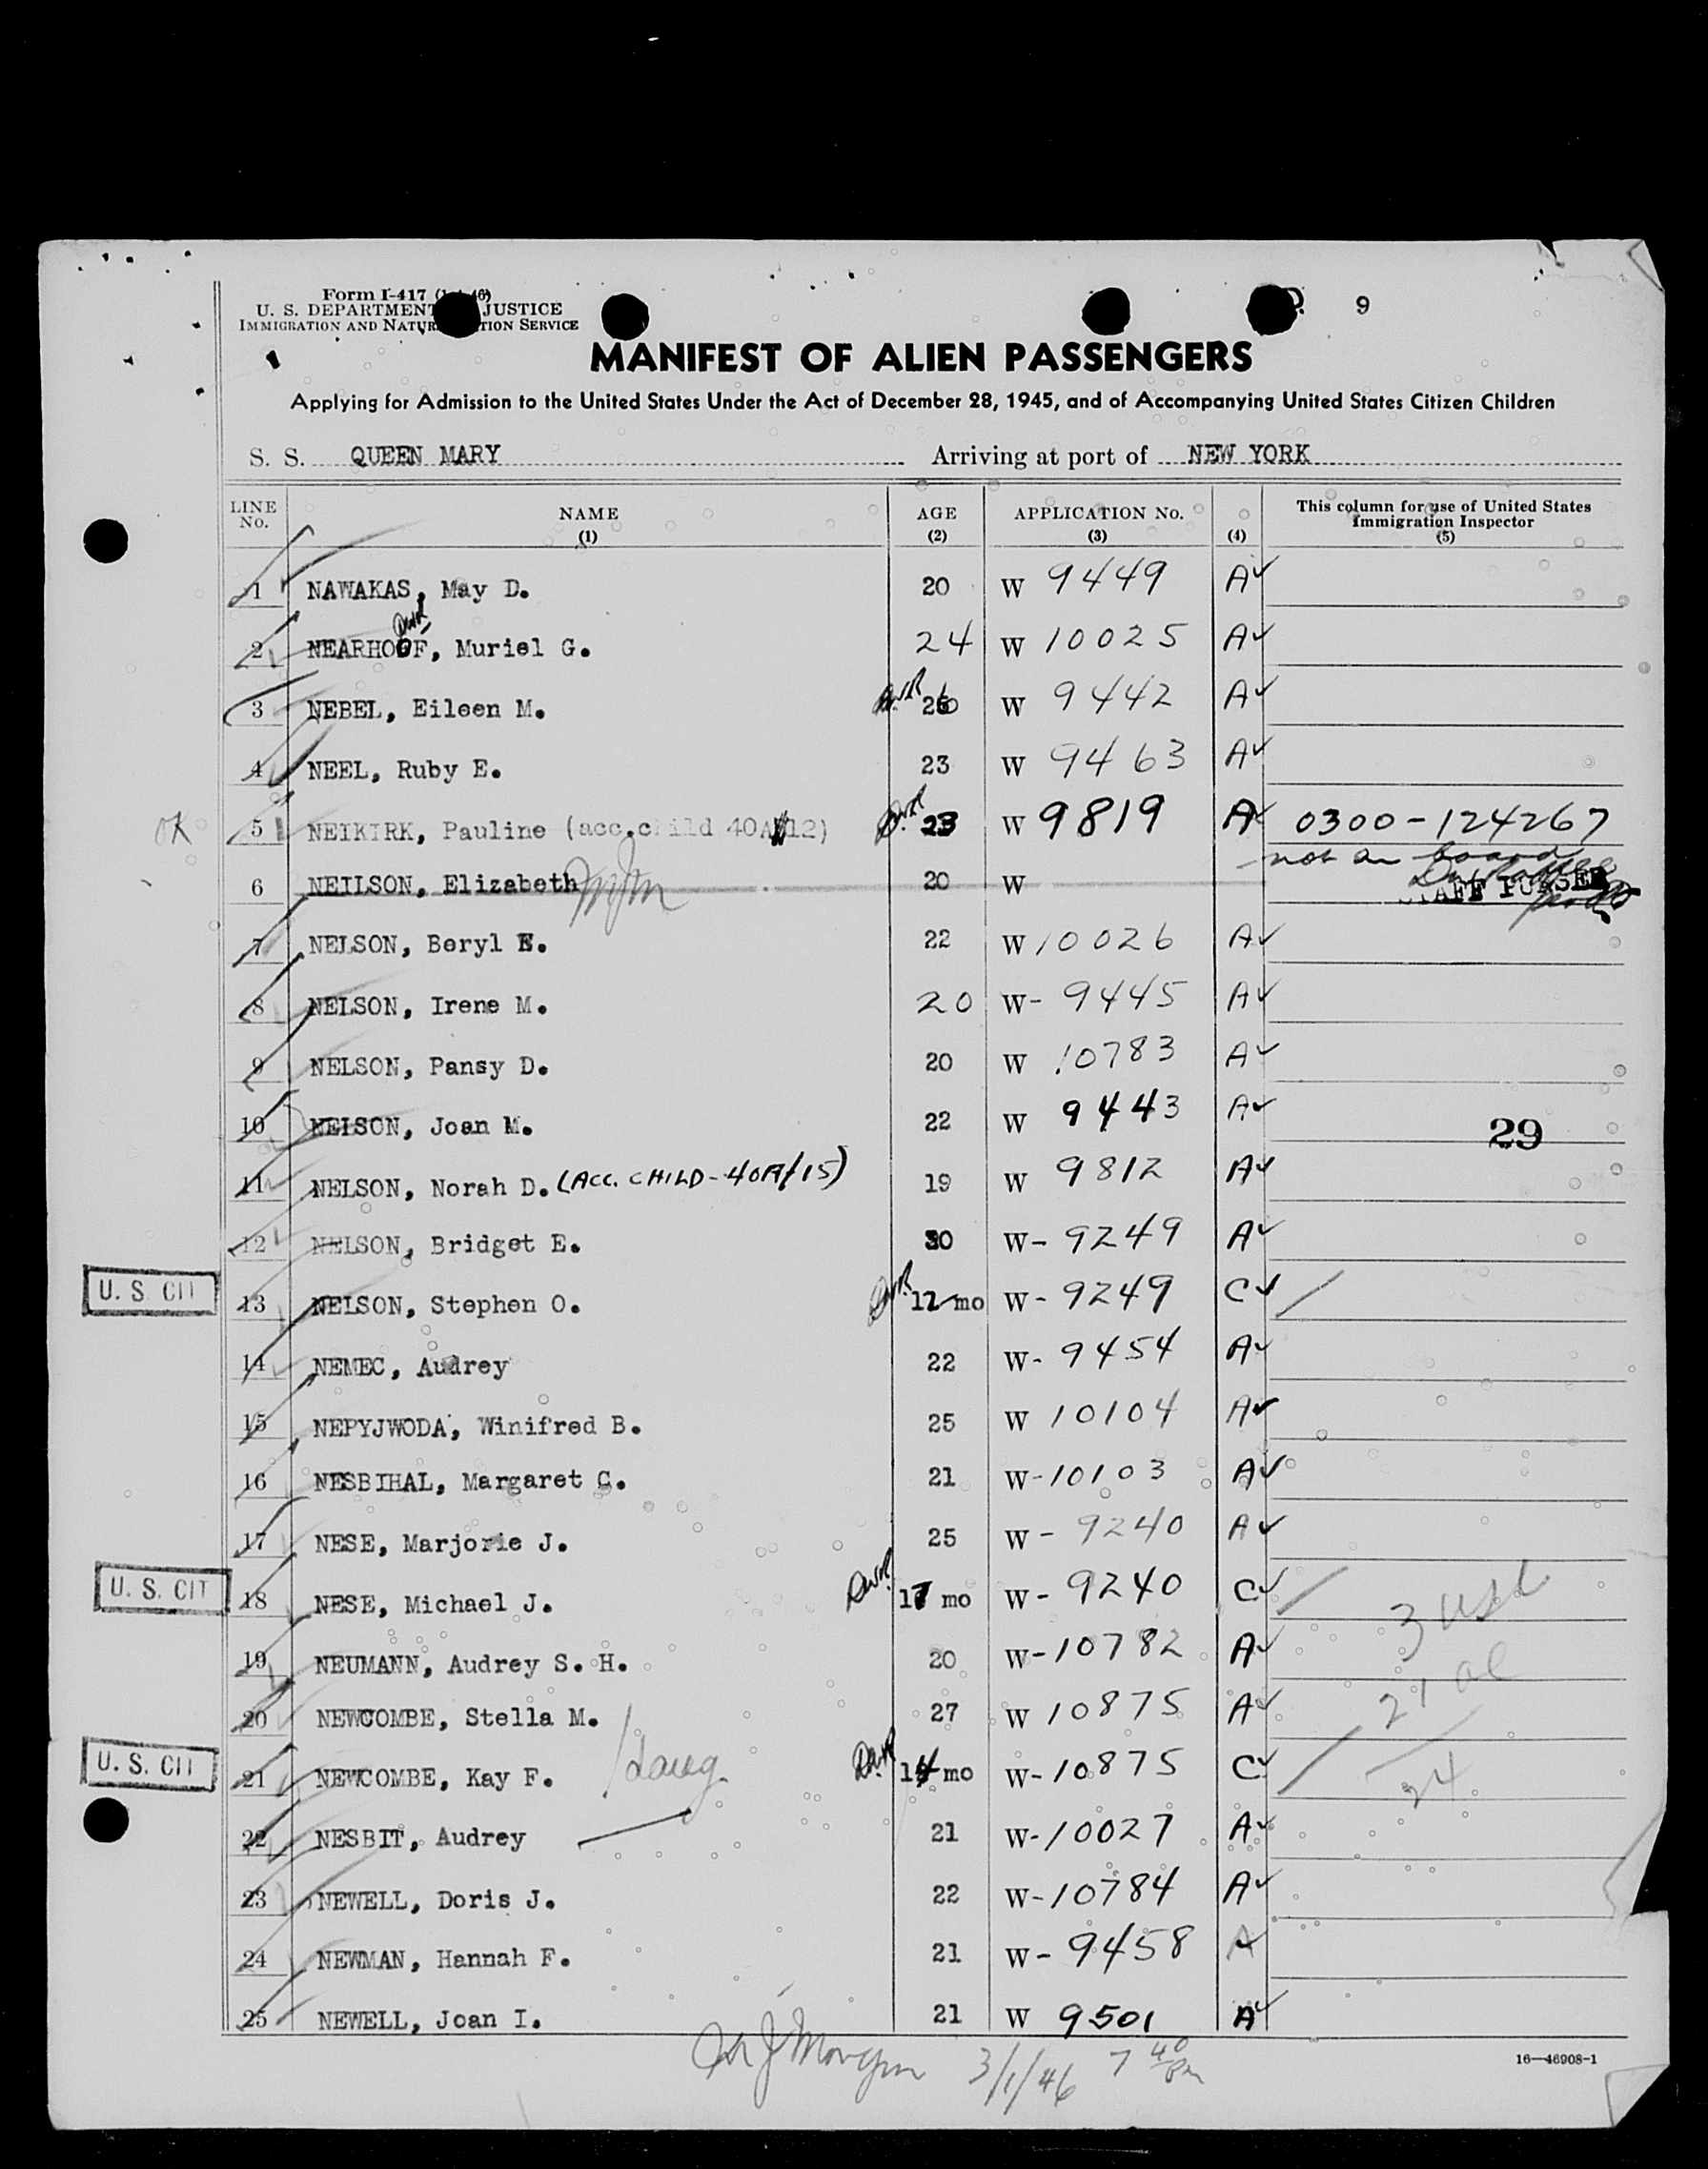 Form I-417
U. S. DEPARTMENT JUSTICE
IMMIGRATION AND NATUR TION SERVICE
9
MANIFEST OF ALIEN PASSENGERS
Applying for Admission to the United States Under the Act of December 28, 1945, and of Accompanying United States Citizen Children
S. S. QUEEN MARY Arriving at port of NEW YORK
LINE No. NAME (1) AGE (2) APPLICATION No. (3) (4) This column for use of United States Immigration Inspector (5)
1 NAWAKAS, May D. 20 W 9449 A✓
2 NEARHOOF, Muriel G. 24 W 10025 A✓
3 NEBEL, Eileen M. 26 W 9442 A✓
4 NEEL, Ruby E. 23 W 9463 A✓
OK 5 NEIKIRK, Pauline (acc.child 40A/12) 23 W 9819 A✓ 0300-124267
not on board
6 NEILSON, Elizabeth 20 W STAFF PURSER
7 NELSON, Beryl E. 22 W 10026 A✓
8 NELSON, Irene M. 20 W- 9445 A✓
9 NELSON, Pansy D. 20 W 10783 A✓
10 NELSON, Joan M. 22 W 9443 A✓ 29
11 NELSON, Norah D. (ACC. CHILD-40A/15) 19 W 9812 A✓
12 NELSON, Bridget E. 30 W- 9249 A✓
U. S. CIT 13 NELSON, Stephen O. 12 mo W- 9249 C✓
14 NEMEC, Audrey 22 W- 9454 A✓
15 NEPYJWODA, Winifred B. 25 W 10104 A✓
16 NESBIHAL, Margaret C. 21 W-10103 A✓
17 NESE, Marjorie J. 25 W- 9240 A✓
U. S. CIT 18 NESE, Michael J. 17 mo W- 9240 C✓ 3 usc
19 NEUMANN, Audrey S. H. 20 W-10782 A✓ 21 al
20 NEWCOMBE, Stella M. 27 W 10875 A✓
U. S. CIT 21 NEWCOMBE, Kay F. daug 14 mo W-10875 C✓ 24
22 NESBIT, Audrey 21 W-10027 A✓
23 NEWELL, Doris J. 22 W-10784 A✓
24 NEWMAN, Hannah F. 21 W- 9458 A✓
25 NEWELL, Joan I. 21 W 9501 A✓
3/1/46 7 40 Pm
16—46908-1